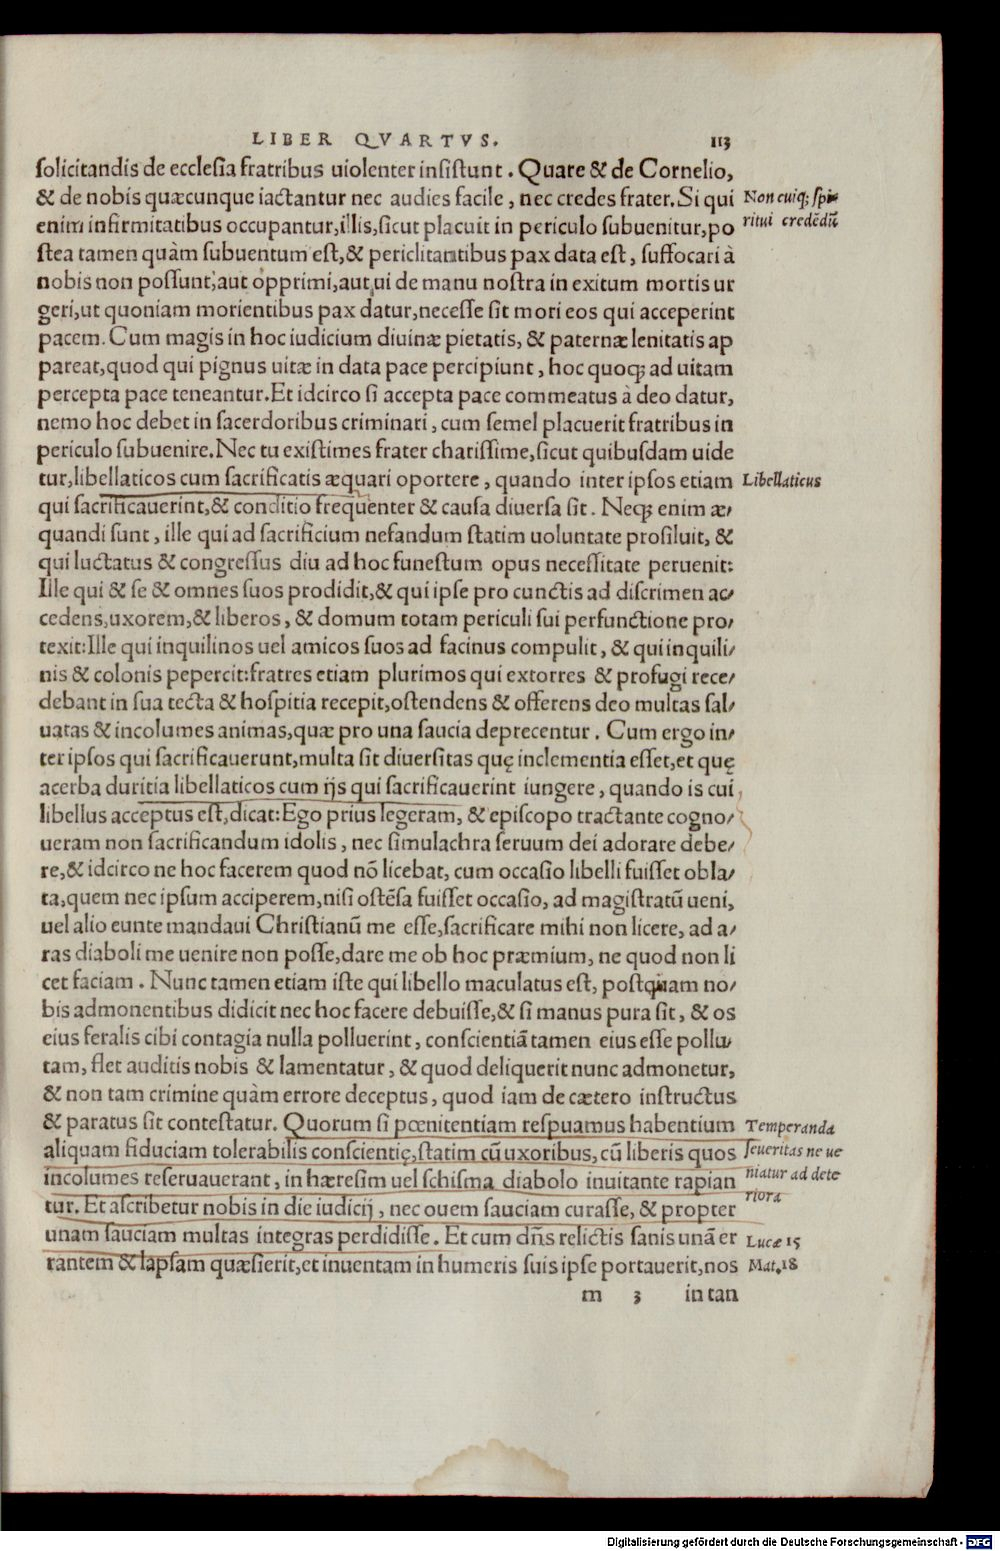 LIBER QVARTVS. 113
ſolicitandis de eccleſia fratribus uiolenter inſiſtunt. Quare & de Cornelio,
& de nobis quæcunque iactantur nec audies facile, nec credes frater. Si qui
Non cuiq; ſpi-
enim infirmitatibus occupantur, illis, ſicut placuit in periculo ſubuenitur, po
ritui credēdū
ſtea tamen quàm ſubuentum eſt, & periclitantibus pax data eſt, ſuffocari à
nobis non poſſunt, aut opprimi, aut ui de manu noſtra in exitum mortis ur
geri, ut quoniam morientibus pax datur, neceſſe ſit mori eos qui acceperint
pacem. Cum magis in hoc iudicium diuinæ pietatis, & paternæ lenitatis ap
pareat, quod qui pignus uitæ in data pace percipiunt, hoc quoq; ad uitam
percepta pace teneantur. Et idcirco ſi accepta pace commeatus à deo datur,
nemo hoc debet in ſacerdoribus criminari, cum ſemel placuerit fratribus in
periculo ſubuenire. Nec tu exiſtimes frater chariſſime, ſicut quibuſdam uide
tur, libellaticos cum ſacrificatis æquari oportere, quando inter ipſos etiam
Libellaticus
qui ſacrificauerint, & conditio frequenter & cauſa diuerſa ſit. Neq; enim æ/
quandi ſunt, ille qui ad ſacrificium nefandum ſtatim uoluntate proſiluit, &
qui luctatus & congreſſus diu ad hoc funeſtum opus neceſſitate peruenit:
Ille qui & ſe & omnes ſuos prodidit, & qui ipſe pro cunctis ad diſcrimen ac/
cedens, uxorem, & liberos, & domum totam periculi ſui perfunctione pro/
texit: Ille qui inquilinos uel amicos ſuos ad facinus compulit, & qui inquili/
nis & colonis pepercit: fratres etiam plurimos qui extorres & profugi rece/
debant in ſua tecta & hoſpitia recepit, oſtendens & offerens deo multas ſal/
uatas & incolumes animas, quæ pro una ſaucia deprecentur. Cum ergo in/
ter ipſos qui ſacrificauerunt, multa ſit diuerſitas quę inclementia eſſet, et quę
acerba duritia libellaticos cum ijs qui ſacrificauerint iungere, quando is cui
libellus acceptus eſt, dicat: Ego prius legeram, & epiſcopo tractante cogno/
ueram non ſacrificandum idolis, nec ſimulachra ſeruum dei adorare debe/
re, & idcirco ne hoc facerem quod nō licebat, cum occaſio libelli fuiſſet obla/
ta, quem nec ipſum acciperem, niſi oſtēſa fuiſſet occaſio, ad magiſtratū ueni,
uel alio eunte mandaui Chriſtianū me eſſe, ſacrificare mihi non licere, ad a/
ras diaboli me uenire non poſſe, dare me ob hoc præmium, ne quod non li
cet faciam. Nunc tamen etiam iſte qui libello maculatus eſt, poſtquam no/
bis admonentibus didicit nec hoc facere debuiſſe, & ſi manus pura ſit, & os
eius feralis cibi contagia nulla polluerint, conſcientiā tamen eius eſſe pollu/
tam, flet auditis nobis & lamentatur, & quod deliquerit nunc admonetur,
& non tam crimine quàm errore deceptus, quod iam de cætero inſtructus
& paratus ſit conteſtatur. Quorum ſi pœnitentiam reſpuamus habentium
Temperanda
aliquam fiduciam tolerabilis conſcientię, ſtatim cū uxoribus, cū liberis quos
ſeueritas ne ue
incolumes reſeruauerant, in hæreſim uel ſchiſma diabolo inuitante rapian
niatur ad dete
tur. Et aſcribetur nobis in die iudicij, nec ouem ſauciam curaſſe, & propter
riora
unam ſauciam multas integras perdidiſſe. Et cum dn̄s relictis ſanis unā er
Lucæ 15
rantem & lapſam quæſierit, et inuentam in humeris ſuis ipſe portauerit, nos
Mat. 18
m 3 in tan
Digitalisierung gefördert durch die Deutsche Forschungsgemeinschaft - DFG